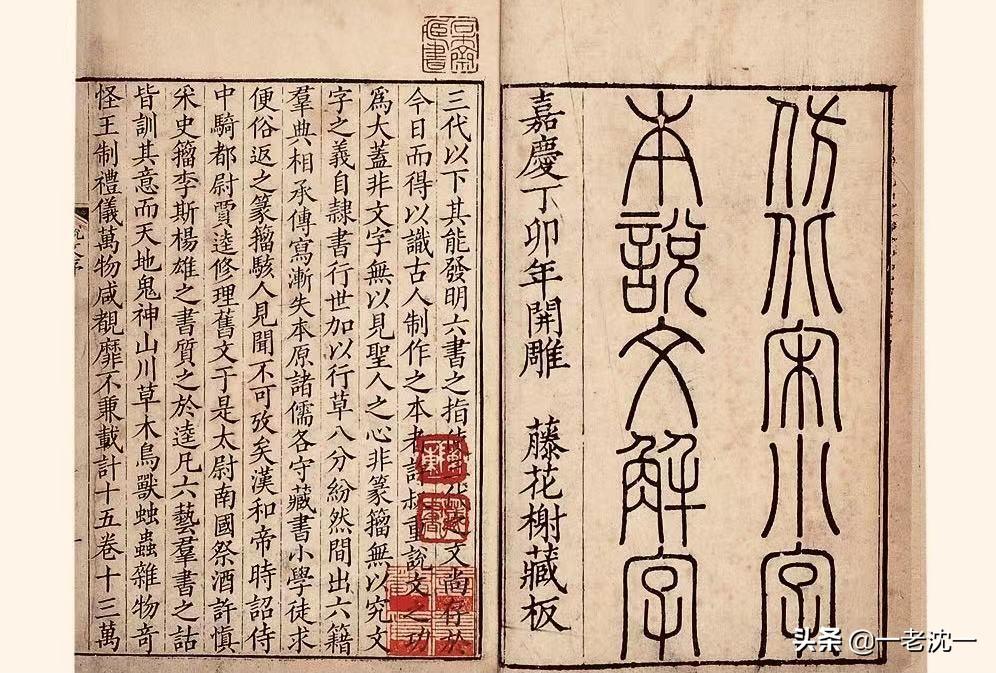 仿北宋小字
本說文解字
嘉慶丁卯年開雕 藤花榭藏板
三代以下其能發明六書之指使三文尚存於
今日而得以識古人制作之本者許叔重說文之功
爲大蓋非文字無以見聖人之心非篆籀無以究文
字之義自隸書行世加以行草八分紛然間出六籍
羣典相承傳寫漸失本原諸儒各守藏書小學徒求
便俗返之篆籀駭人見聞不可攷矣漢和帝時詔侍
中騎都尉賈逵修理舊文于是太尉南國祭酒許愼
采史籀李斯楊雄之書質之於逵凡六藝羣書之詁
皆訓其意而天地鬼神山川草木鳥獸䖵蟲雜物奇
怪王制禮儀萬物咸覩靡不兼載計十五卷十三萬
頭条 @一老沈一